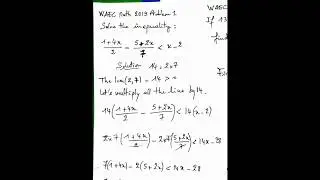 WAEC Math 2019 Problem 1
Solve the inequality:
(1+4x)/2 - (5+2x)/7 < x-2
Solution 14 = 2x7
The lcm(2,7) = 14 > 0
Let's multiply all the line by 14.
14((1+4x)/2 - (5+2x)/7) < 14(x-2)
2x7((1+4x)/2) - 2x7((5+2x)/7) < 14x-28
7(1+4x) - 2(5+2x) < 14x - 28
WAEC
If 13
find